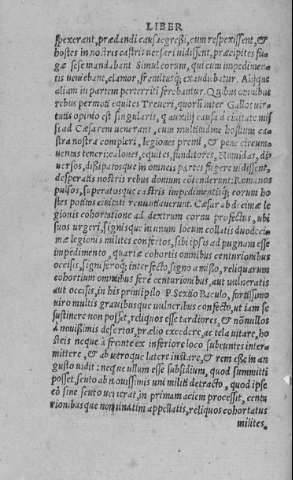 LIBER
spexerant, prædandi causa egressi, cum respexissent, &
hostes in nostris castris versari vidissent, præcipites fu-
gæ sese mandabant. Simul eorum, qui cum impedimen-
tis veniebant, clamor, fremitusq; exaudiebatur. Alijque
aliam in partem perterriti ferebantur. Quibus omnibus
rebus permoti equites Treueri, quorum inter Gallos uir-
tutis opinio est singularis, qui auxilij causa à ciuitate mis
si ad Cæsarem uenerant, cum multitudine hostium ca-
stra nostra compleri, legiones premi, & pene circum-
uentas teneri: calones, equites, funditores, Numidas, di-
uersos, dissipatosque in omneis parteis fugere uidissent,
desperatis nostris rebus domum contenderunt: Romanos
pulsos, superatosque castris impedimentisq; eorum ho
stes potitos ciuitati renuntiauerunt. Cæsar ab decimæ le
gionis cohortatione ad dextrum cornu profectus, ubi
suos urgeri, signisque in unum locum collatis duodeci-
mæ legionis milites confertos, sibi ipsis ad pugnam esse
impedimento, quartæ cohortis omnibus centurionibus
occisis, signiferoq; interfecto, signo amisso, reliquarum
cohortium omnibus ferè centurionibus, aut uulneratis
aut occisis, in his primipilo P. Sextio Baculo, fortissimo
uiro multis grauibusque uulneribus confecto, ut iam se
sustinere non posset, reliquos esse tardiores, & nonnullos
à nouissimis desertos, prælio excedere, ac tela uitare, ho
steis neque à fronte ex inferiore loco subeuntes interm
mittere, & ab utroque latere instare, & rem esse in an
gusto uidit: neque ullum esse subsidium, quod summitti
posset, scuto ab nouissimis uni militi detracto, quod ipse
eò sine scuto uenerat, in primam aciem processit, centu
rionibusque nominatim appellatis, reliquos cohortatus
milites,